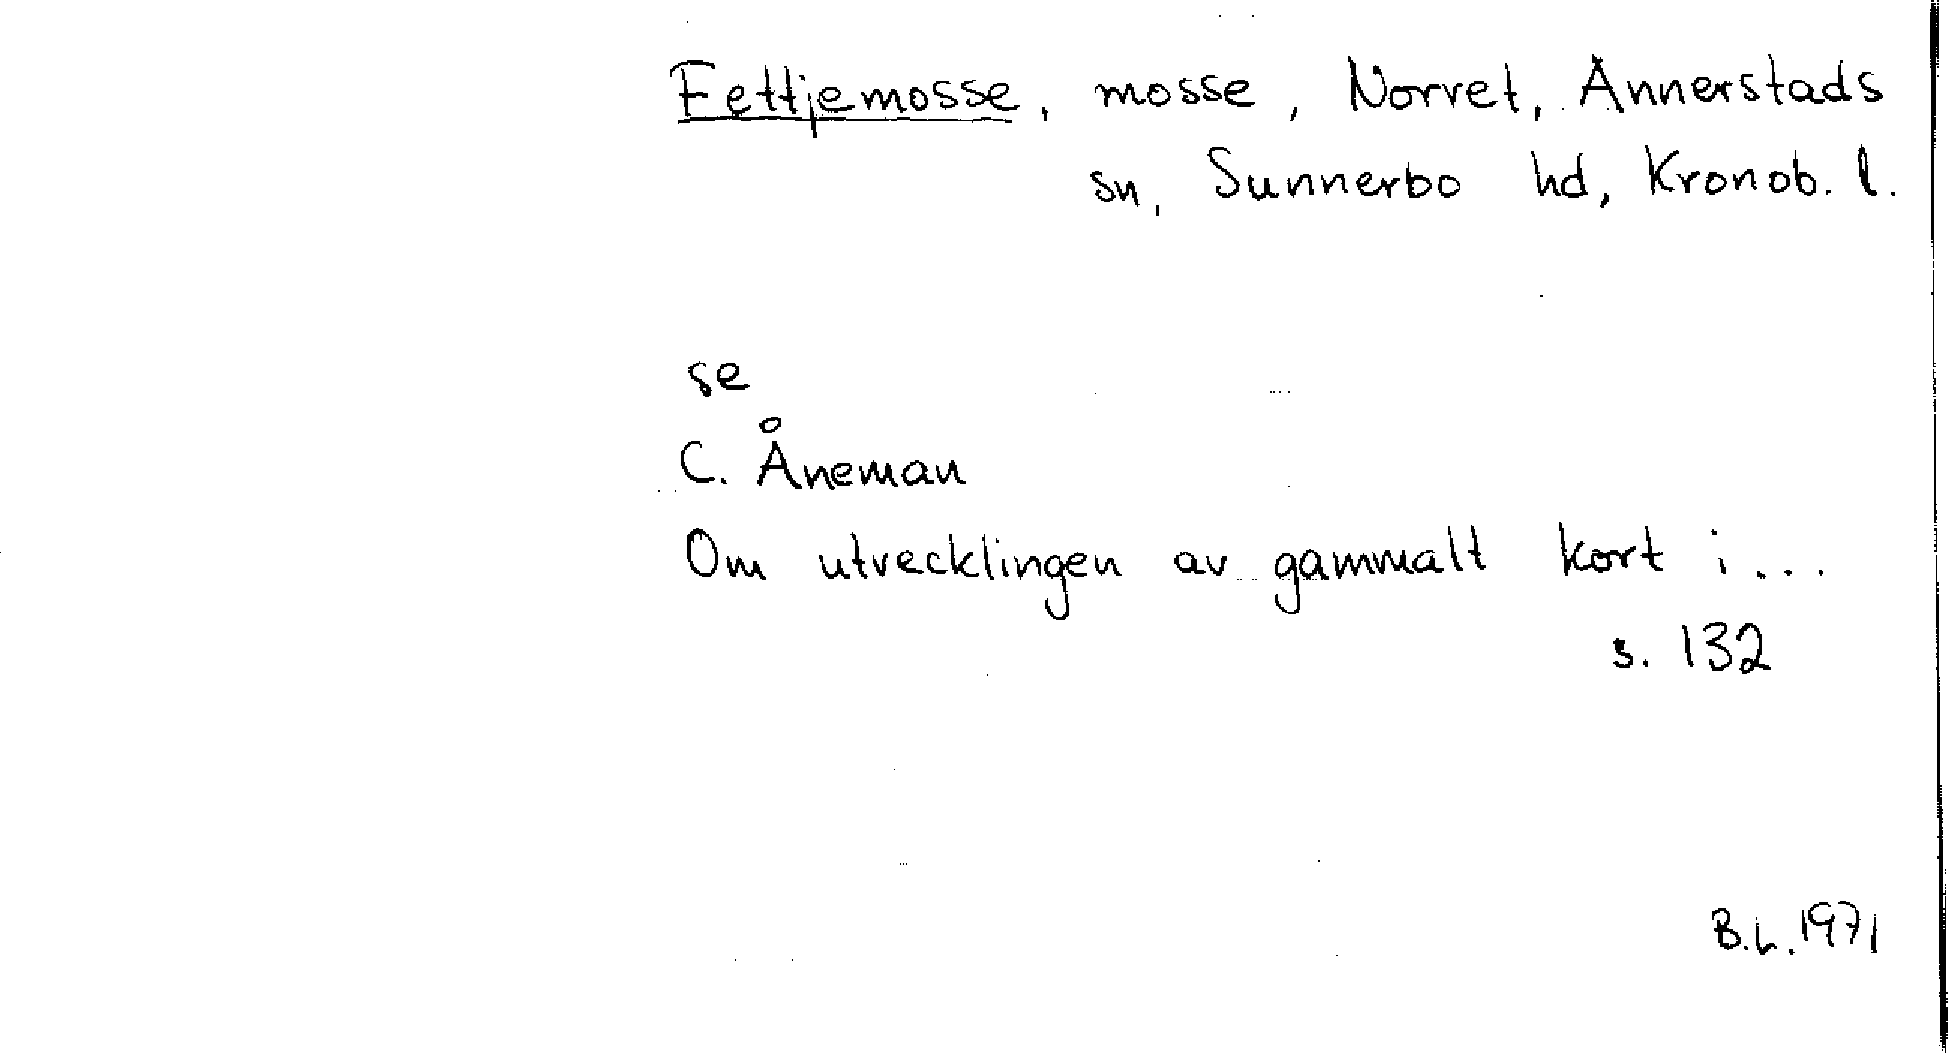 Fettjemosse, mosse, Norret, Annerstads
sn, Sunnerbo hd, Kronob. l.
se
C. Åneman
Om utvecklingen av gammalt kort i...
s. 132
B.L. 1971